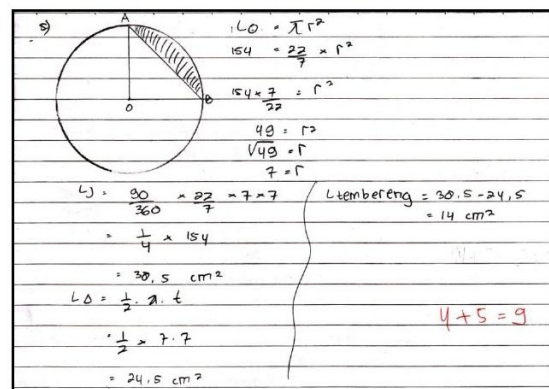 5)
A
B
O
LO = πr²
154 = 22/7 × r²
154 × 7/22 = r²
49 = r²
√49 = r
7 = r
LJ = 90/360 × 22/7 × 7 × 7
= 1/4 × 154
= 38,5 cm²
L∆ = 1/2 . a . t
= 1/2 × 7 . 7
= 24,5 cm²
Ltembereng = 38,5 - 24,5
= 14 cm²
4 + 5 = 9